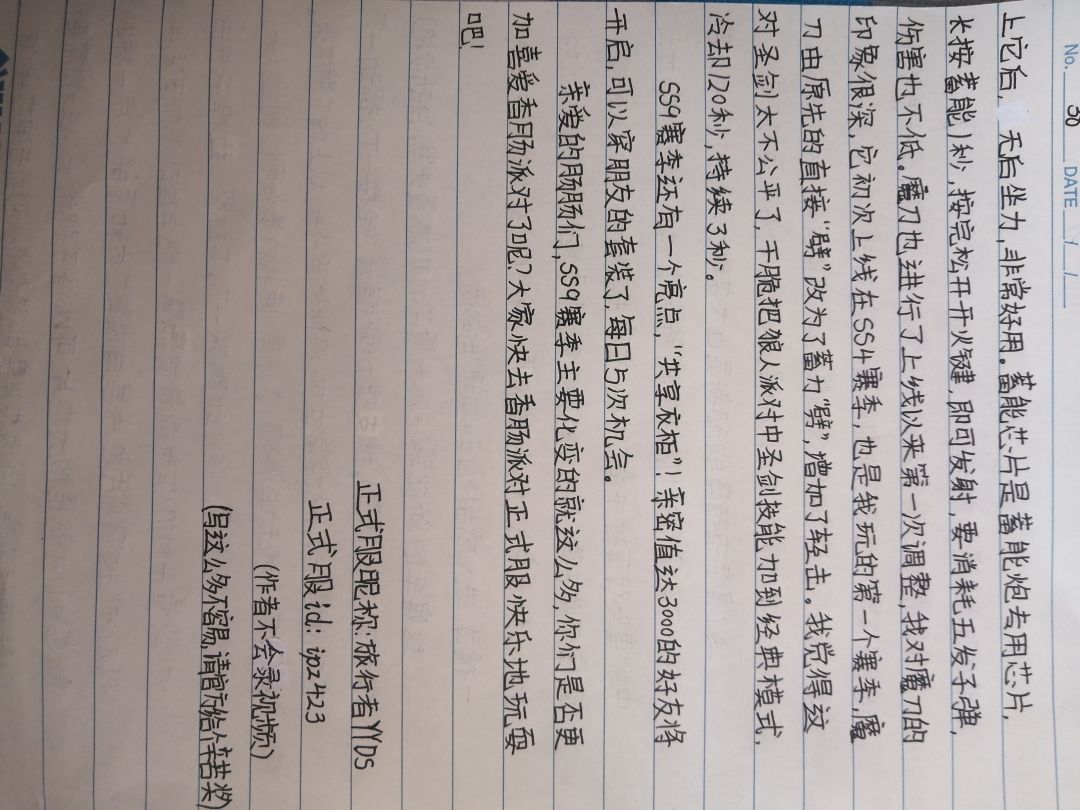 No. 30 DATE / /
上它后,无后坐力,非常好用。蓄能芯片是蓄能炮专用芯片,
长按蓄能1秒,按完松开开火键,即可发射,要消耗五发子弹,
伤害也不低。魔刀也进行了上线以来第一次调整,我对魔刀的
印象很深,它初次上线在SS4赛季,也是我玩的第一个赛季,魔
刀由原先的直接“劈”改为了蓄力“劈”,增加了轻击。我觉得这
对圣剑太不公平了,干脆把狼人派对中圣剑技能加到经典模式,
冷却120秒,持续3秒。
SS9赛季还有一个亮点,“共享衣柜”!亲密值达3000的好友将
开启,可以穿朋友的套装了,每日5次机会。
亲爱的肠肠们,SS9赛季主要化变的就这么多,你们是否更
加喜爱香肠派对了呢?大家快去香肠派对正式服快乐地玩耍
吧!
正式服昵称:旅行者YYDS
正式服id:ipz423
(作者不会录视频)
(写这么多不容易,请官方给个辛苦奖)